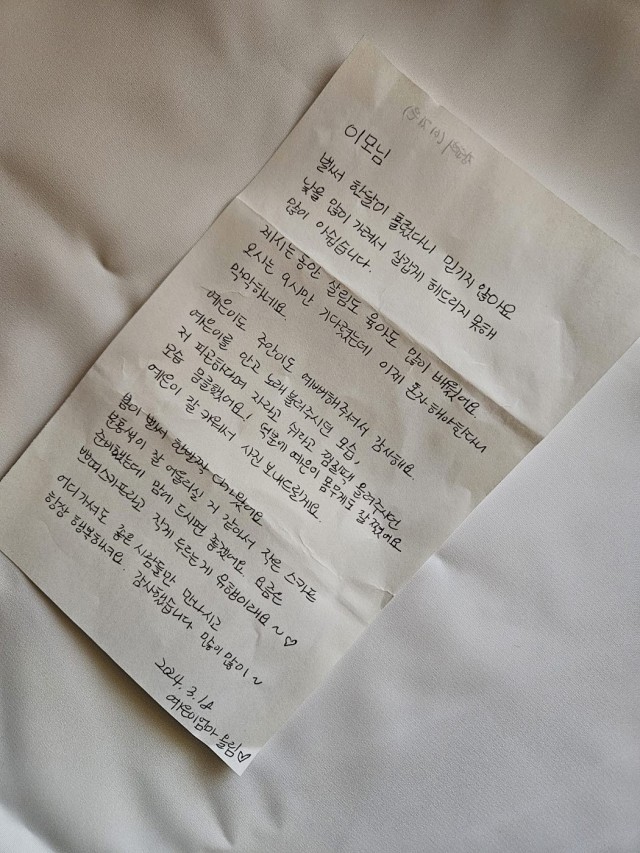 이모님
벌써 한달이 흘렀다니 믿기지 않아요
낯을 많이 가려서 살갑게 해드리지 못해
많이 아쉽습니다.
계시는동안 살림도 육아도 많이 배웠어요.
오시는 9시만 기다렸는데 이제 혼자해야한다니
막막하네요.
예은이도 주안이도 예뻐해주셔서 감사해요.
예은이를 안고 노래 불러주시던 모습,
저 피곤하다며 자라고 쉬라고 낑길때 올려주시던
모습 뭉클했어요! 덕분에 예은이 몸무게도 잘 쪘어요
예은이 잘 키워서 사진 보내드릴게요.
봄이 벌써 한발자 다가왔어요
분홍색이 잘 어울리실 거 같아서 작은 스카프
준비했는데 맘에 드시면 좋겠어요 요즘은
쁘띠스카프라고 작게 두르는게 유행이래요~♡
어디가셔도 좋은 사람들만 만나시고
항상 행복하세요. 감사했습니다 많이많이~
2024.3.18
예은이엄마 드림♡